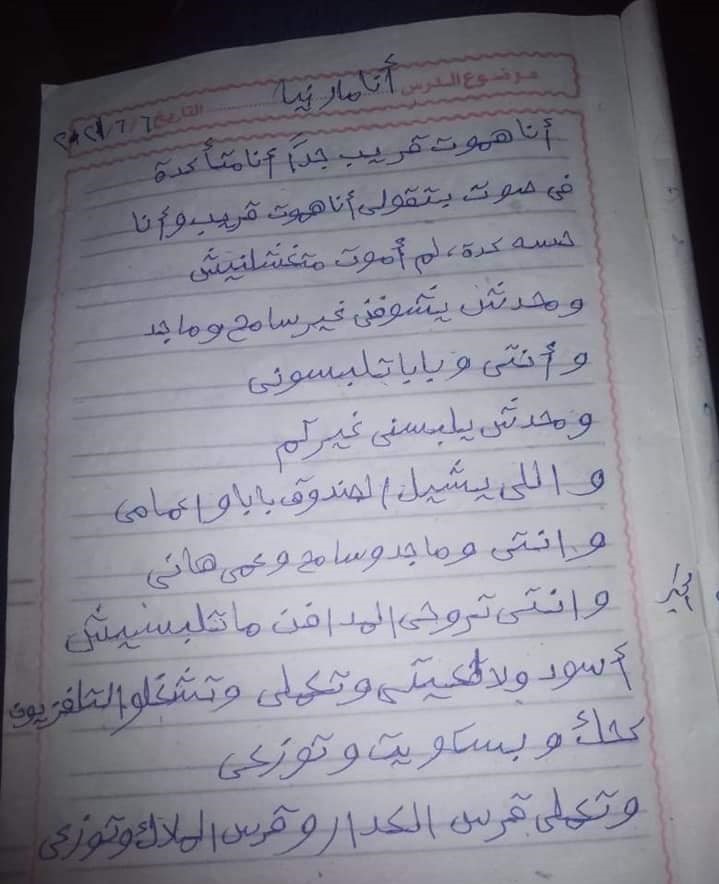 موضوع الدرس أنا مارينا التاريخ ٦/٦/٢٠٢١
أنا هموت قريب جدًا أنا متأكدة
فى صوت بتقولى أنا هموت قريب وأنا
حسه كدة، لم أموت متغسلنيش
ومحدش يشوفنى غير سامح وماجد
وأنتى وبابا تلبسونى
ومحدش يلبسنى غيركم
واللى يشيل الصندوق بابا واعمامى
وانتى وماجد وسامح وعمى هانى
وانتى تروحى المدافن ماتلبسيش
أسود ولا تعيتى وتعملى وتشغلو التلفزيون
كحك وبسكويت وتوزعى
وتعملى قرس الكدار وقرس الملاك وتوزعى